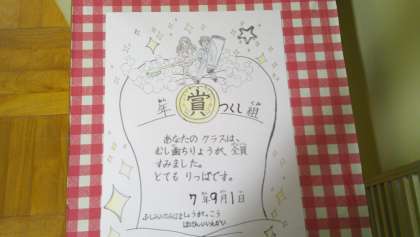 年 賞 つくし 組
ねん くみ
あなたの クラスは、
むし歯ちりょうが、全員
すみました。
とても りっぱです。
7年9月1日